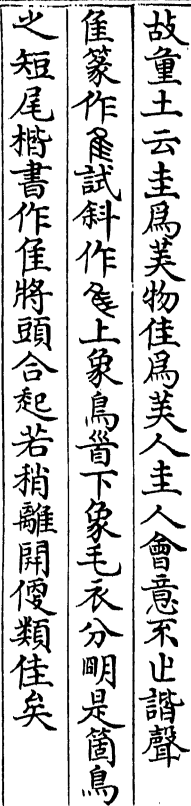 故重土云圭爲美物佳爲美人圭人會意不止諧聲
隹篆作試斜作上象鳥首下象毛衣分明是箇鳥
之短尾楷書作隹將頭合起若稍離開便類佳矣